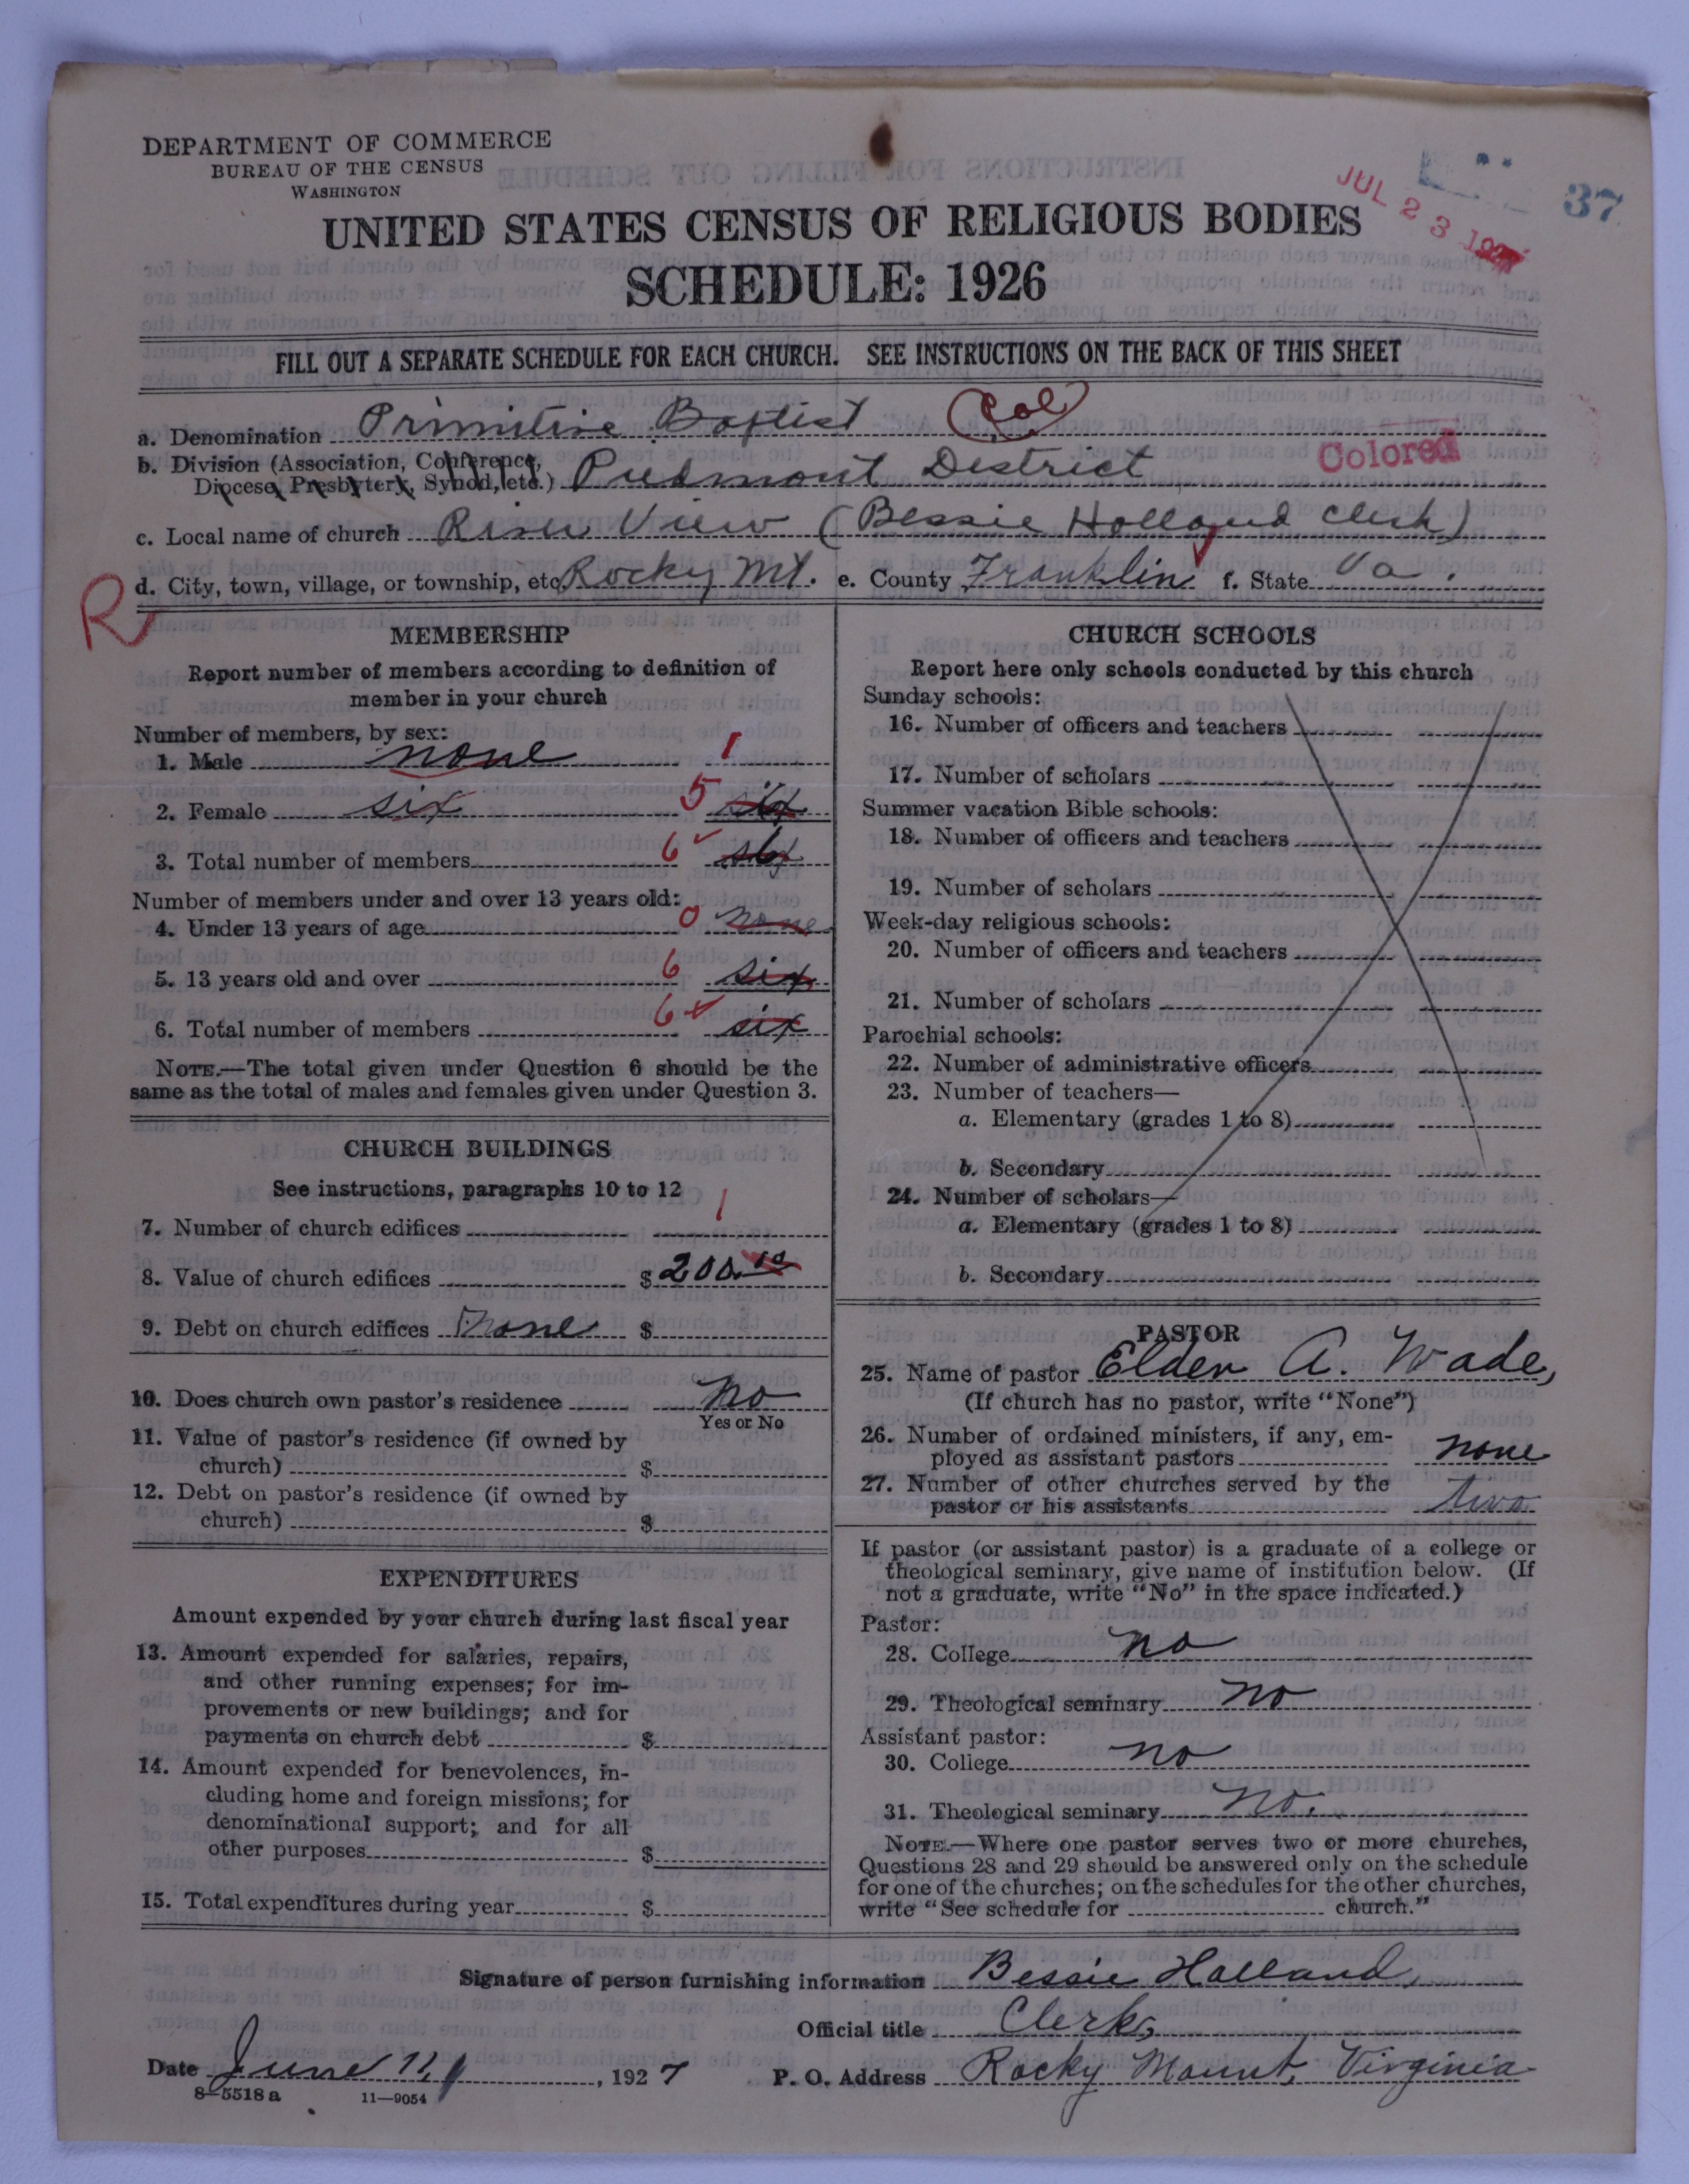 DEPARTMENT OF COMMERCE
BUREAU OF THE CENSUS
WASHINGTON
JUL 23 192
37
UNITED STATES CENSUS OF RELIGIOUS BODIES
SCHEDULE: 1926
FILL OUT A SEPARATE SCHEDULE FOR EACH CHURCH. SEE INSTRUCTIONS ON THE BACK OF THIS SHEET
a. Denomination Primitive Baptist Col
b. Division (Association, Conference,
Diocese, Presbytery, Synod, etc.) Piedmont District
Colored
c. Local name of church River View (Bessie Holland Clerk)
d. City, town, village, or township, etc. Rocky Mt. e. County Franklin f. State Va.
R
MEMBERSHIP
Report number of members according to definition of
member in your church
Number of members, by sex:
1. Male none 1
2. Female six 5 six
3. Total number of members 6 six
Number of members under and over 13 years old:
4. Under 13 years of age 0 none
5. 13 years old and over 6 six
6. Total number of members 6 six
NOTE.—The total given under Question 6 should be the
same as the total of males and females given under Question 3.
CHURCH BUILDINGS
See instructions, paragraphs 10 to 12
7. Number of church edifices 1
8. Value of church edifices $ 200.
9. Debt on church edifices None $
10. Does church own pastor's residence no
Yes or No
11. Value of pastor's residence (if owned by
church) $
12. Debt on pastor's residence (if owned by
church) $
EXPENDITURES
Amount expended by your church during last fiscal year
13. Amount expended for salaries, repairs,
and other running expenses; for im-
provements or new buildings; and for
payments on church debt $
14. Amount expended for benevolences, in-
cluding home and foreign missions; for
denominational support; and for all
other purposes $
15. Total expenditures during year $
CHURCH SCHOOLS
Report here only schools conducted by this church
Sunday schools:
16. Number of officers and teachers
17. Number of scholars
Summer vacation Bible schools:
18. Number of officers and teachers
19. Number of scholars
Week-day religious schools:
20. Number of officers and teachers
21. Number of scholars
Parochial schools:
22. Number of administrative officers
23. Number of teachers—
a. Elementary (grades 1 to 8)
b. Secondary
24. Number of scholars—
a. Elementary (grades 1 to 8)
b. Secondary
PASTOR
25. Name of pastor Elder A. Wade,
(If church has no pastor, write "None")
26. Number of ordained ministers, if any, em-
ployed as assistant pastors none
27. Number of other churches served by the
pastor or his assistants two
If pastor (or assistant pastor) is a graduate of a college or
theological seminary, give name of institution below. (If
not a graduate, write "No" in the space indicated.)
Pastor:
28. College no
29. Theological seminary no
Assistant pastor:
30. College no
31. Theological seminary no.
NOTE.—Where one pastor serves two or more churches,
Questions 28 and 29 should be answered only on the schedule
for one of the churches; on the schedules for the other churches,
write "See schedule for church."
Signature of person furnishing information Bessie Holland,
Official title Clerk,
Date June 11, 1927 P. O. Address Rocky Mount, Virginia
8-5518a 11-9054